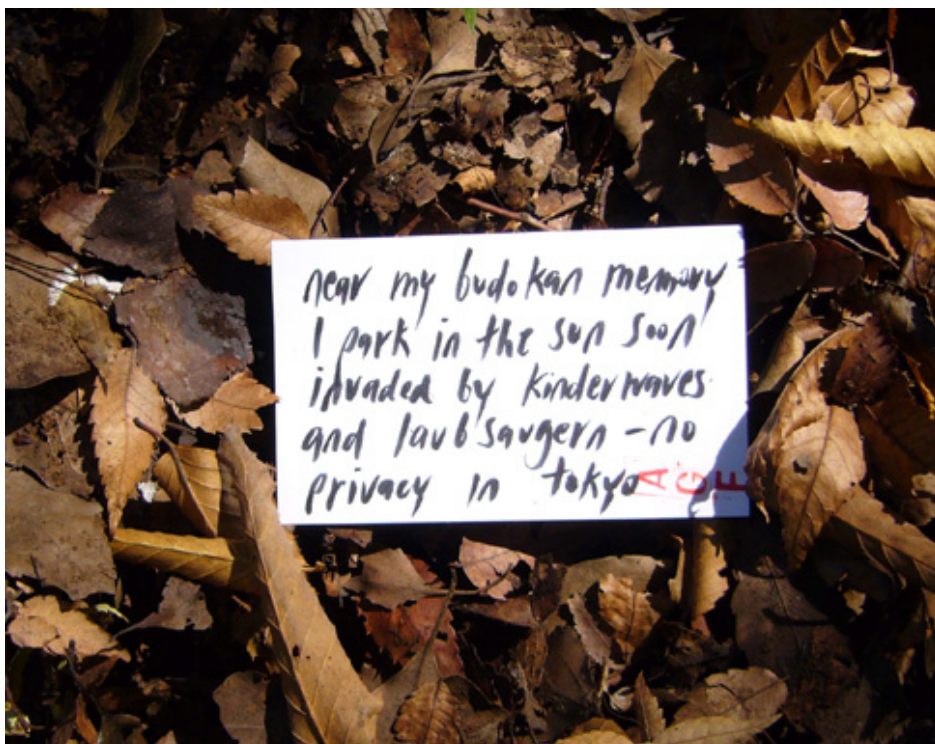 near my budokan memory
I park in the sun soon
invaded by kinderwaves
and laubsaugern - no
privacy in tokyo A G E